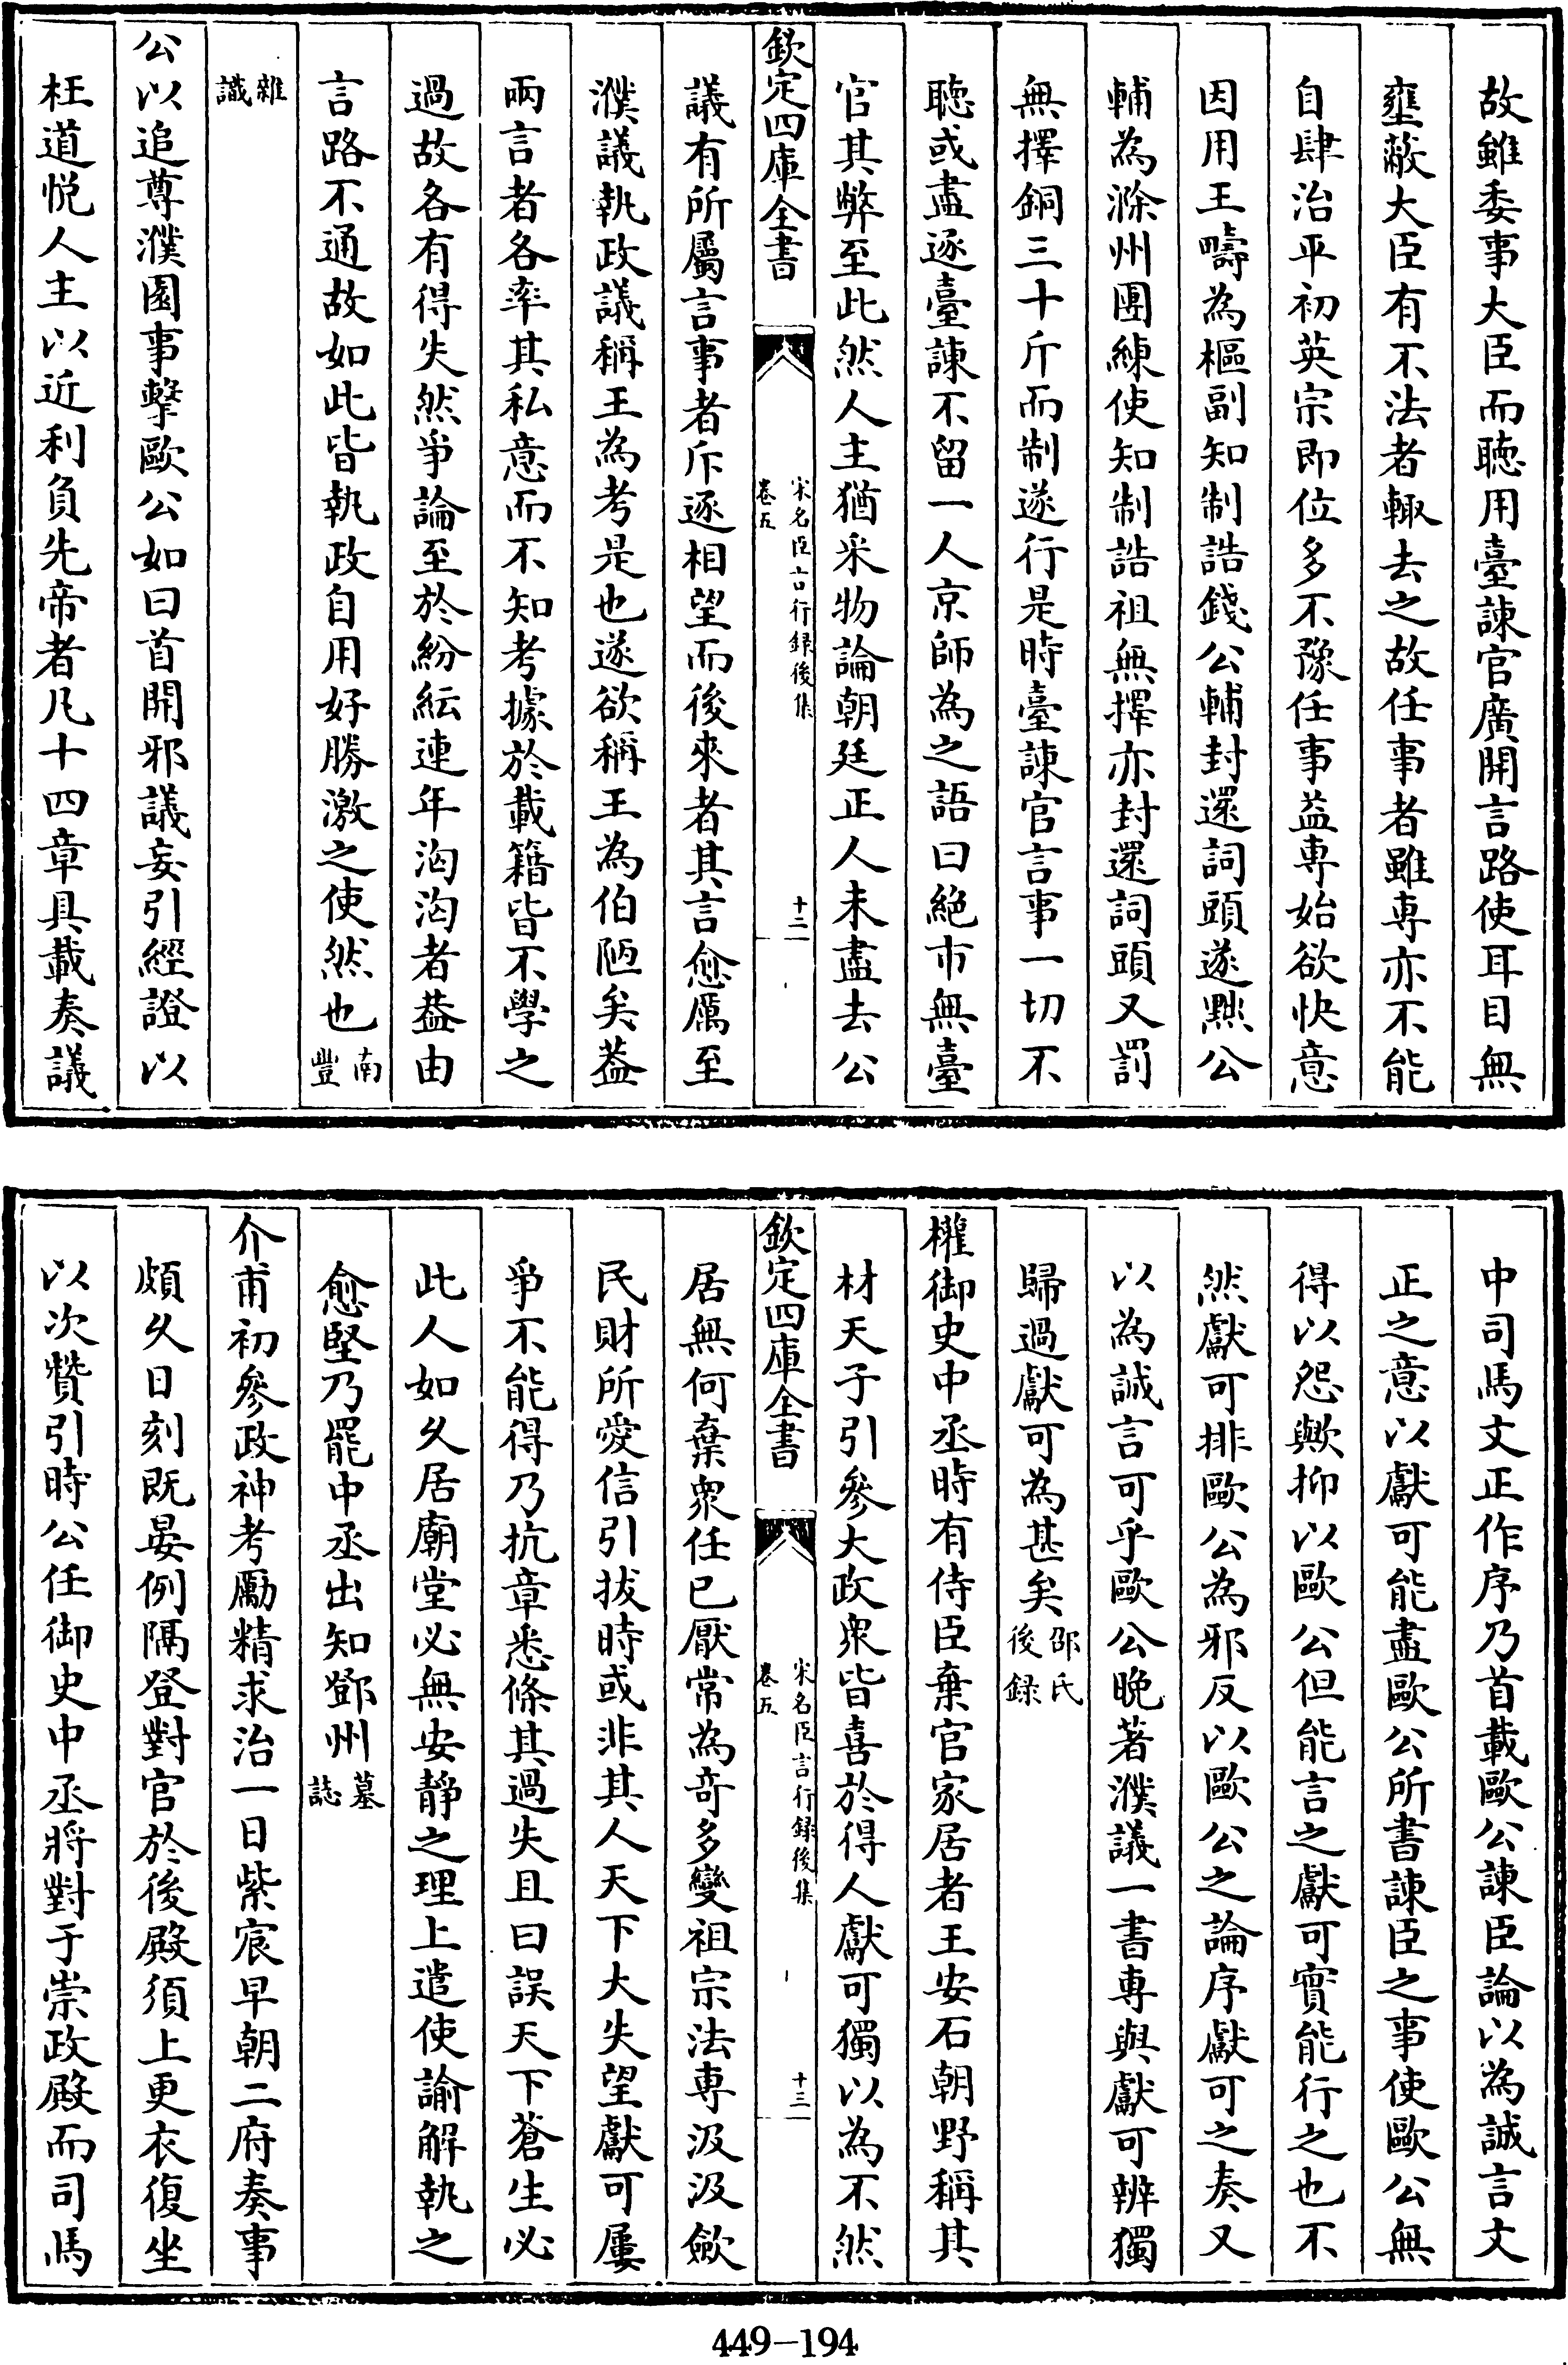 故雖委事大臣而聴用臺諫官廣開言路使耳目無
壅蔽大臣有不法者輙去之故任事者雖専亦不能
自肆治平初英宗即位多不豫任事益専始欲快意
因用王疇為樞副知制誥錢公輔封還詞頭遂黜公
輔為滁州團練使知制誥祖無擇亦封還詞頭又罰
無擇銅三十斤而制遂行是時臺諫官言事一切不
聴或盡逐臺諫不留一人京師為之語曰絶市無臺
官其弊至此然人主猶采物論朝廷正人未盡去公
欽定四庫全書
宋名臣言行録後集
卷五
十二
議有所屬言事者斥逐相望而後來者其言愈厲至
濮議執政議稱王為考是也遂欲稱王為伯陋矣葢
兩言者各率其私意而不知考據於載籍皆不學之
過故各有得失然爭論至於紛紜連年洶洶者葢由
言路不通故如此皆執政自用好勝激之使然也南豐
雜識
公以追尊濮園事擊歐公如曰首開邪議妄引經證以
枉道悦人主以近利負先帝者凡十四章具載奏議
中司馬文正作序乃首載歐公諫臣論以為誠言文
正之意以獻可能盡歐公所書諫臣之事使歐公無
得以怨歟抑以歐公但能言之獻可實能行之也不
然獻可排歐公為邪反以歐公之論序獻可之奏又
以為誠言可乎歐公晩著濮議一書専與獻可辨獨
歸過獻可為甚矣邵氏後録
櫂御史中丞時有侍臣棄官家居者王安石朝野稱其
材天子引參大政衆皆喜於得人獻可獨以為不然
欽定四庫全書
宋名臣言行録後集
卷五
十三
居無何棄衆任已厭常為竒多變祖宗法専汲汲歛
民財所愛信引拔時或非其人天下大失望獻可屢
爭不能得乃抗章悉條其過失且曰誤天下蒼生必
此人如乆居廟堂必無安靜之理上遣使諭解執之
愈堅乃罷中丞出知鄧州墓誌
介甫初參政神考勵精求治一日紫宸早朝二府奏事
頗乆日刻既晏例隔登對官於後殿須上更衣復坐
以次贊引時公任御史中丞將對于崇政殿而司馬
449-194